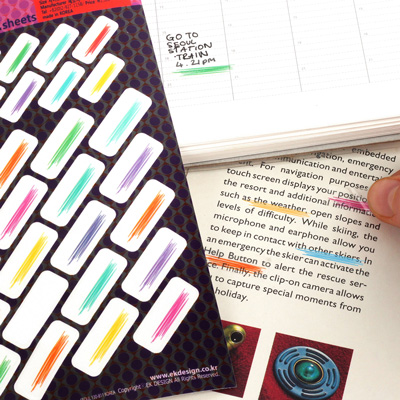 sheets
made in KOREA
GO TO
SEOUL
STATION
TRAIN
4.21pm
embedded
igation, emergency
communication and entertai
For navigation purposes
touch screen displays your positio
the resort and additional informat
such as the weather, open slopes and
levels of difficulty. While skiing, the
microphone and earphone allow you
to keep in contact with other skiers. In
an emergency the skier can activate the
Help Button to alert the rescue ser-
ce. Finally, the clip-on camera allows
to capture special moments from
holiday.
www.ekdesign.co.kr
Copyright . EK DESIGN All Rights Reserved.